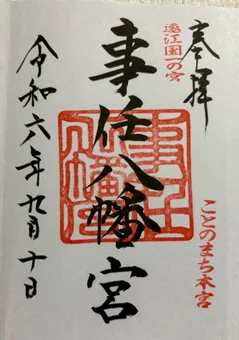 奉拝
遠江国一の宮
事任八幡宮
ことのまち本宮
令和六年九月十日